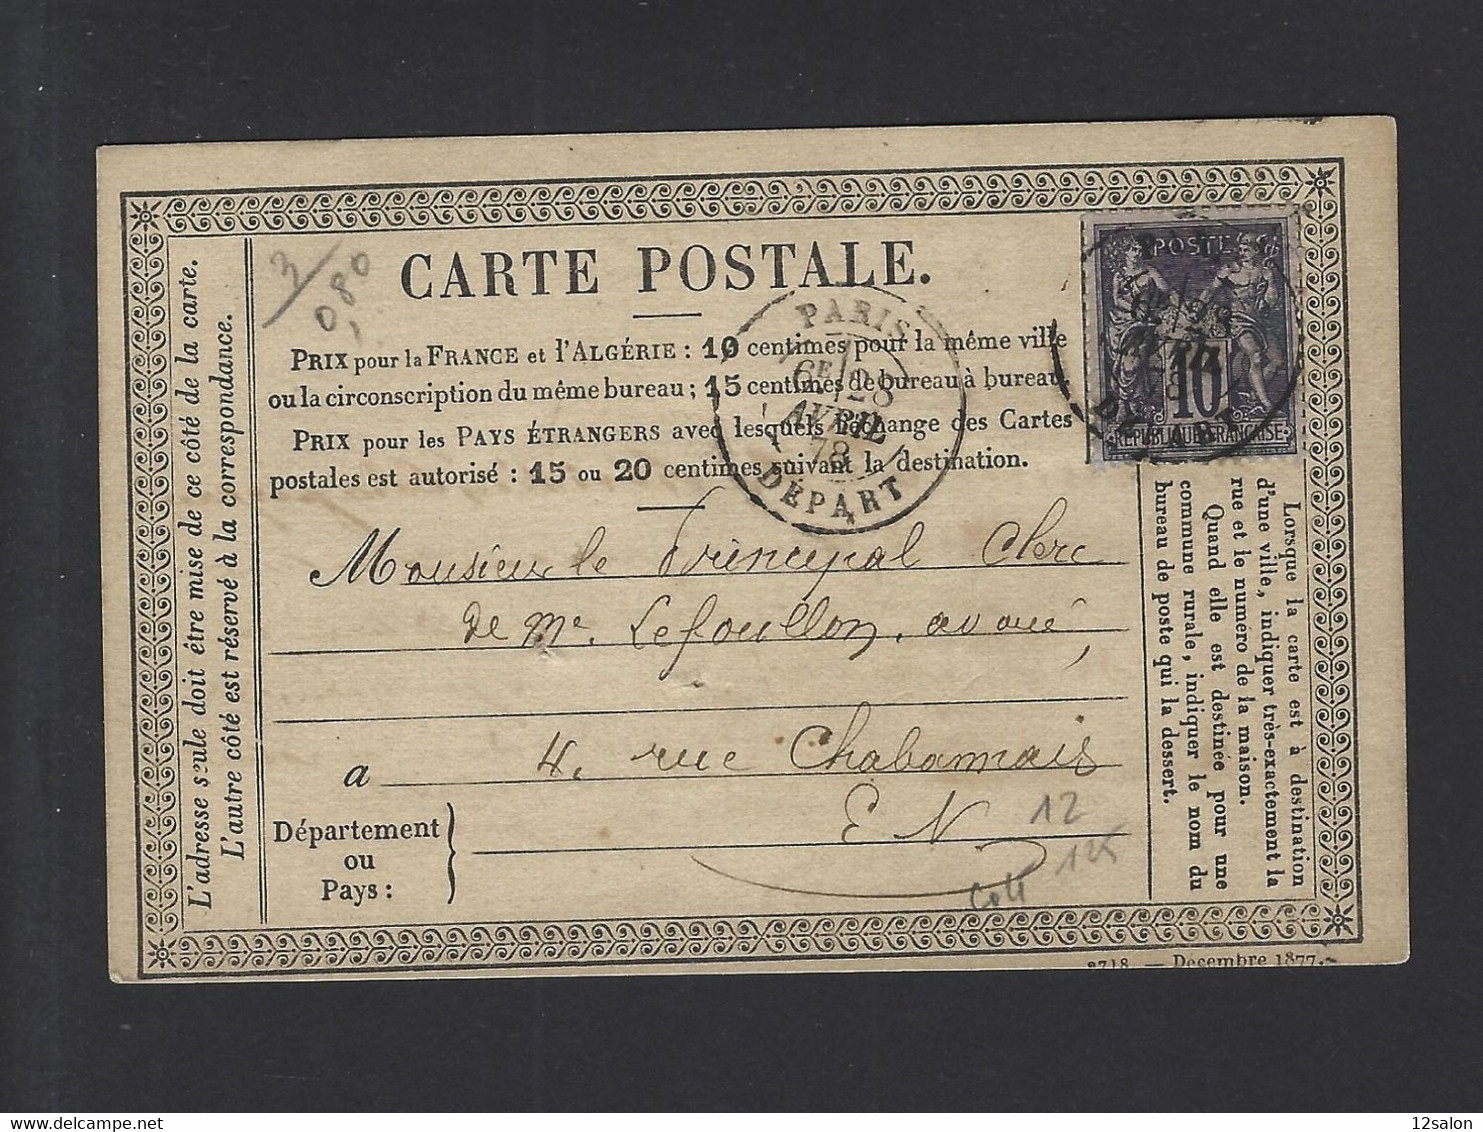 CARTE POSTALE.
3/
0,80
PRIX pour la FRANCE et l'ALGÉRIE : 10 centimes pour la même ville
ou la circonscription du même bureau ; 15 centimes de bureau à bureau.
PRIX pour les PAYS ÉTRANGERS avec lesquels l'échange des Cartes
postales est autorisé : 15 ou 20 centimes suivant la destination.
PARIS
6E 28
AVRIL
78
DÉPART
POSTE
6E 28
AVRIL
10
REPUBLIQUE FRANÇAISE
Monsieur le Principal Clerc
de Me. Lefoullon, avoué,
a 4. rue Chabannais
Département
ou
Pays :
E N
12
125
L'adresse seule doit être mise de ce côté de la carte.
L'autre côté est réservé à la correspondance.
Lorsque la carte est à destination
d'une ville, indiquer très-exactement la
rue et le numéro de la maison.
Quand elle est destinée pour une
commune rurale, indiquer le nom du
bureau de poste qui la dessert.
8718. — Décembre 1877.
www.delcampe.net
12salon